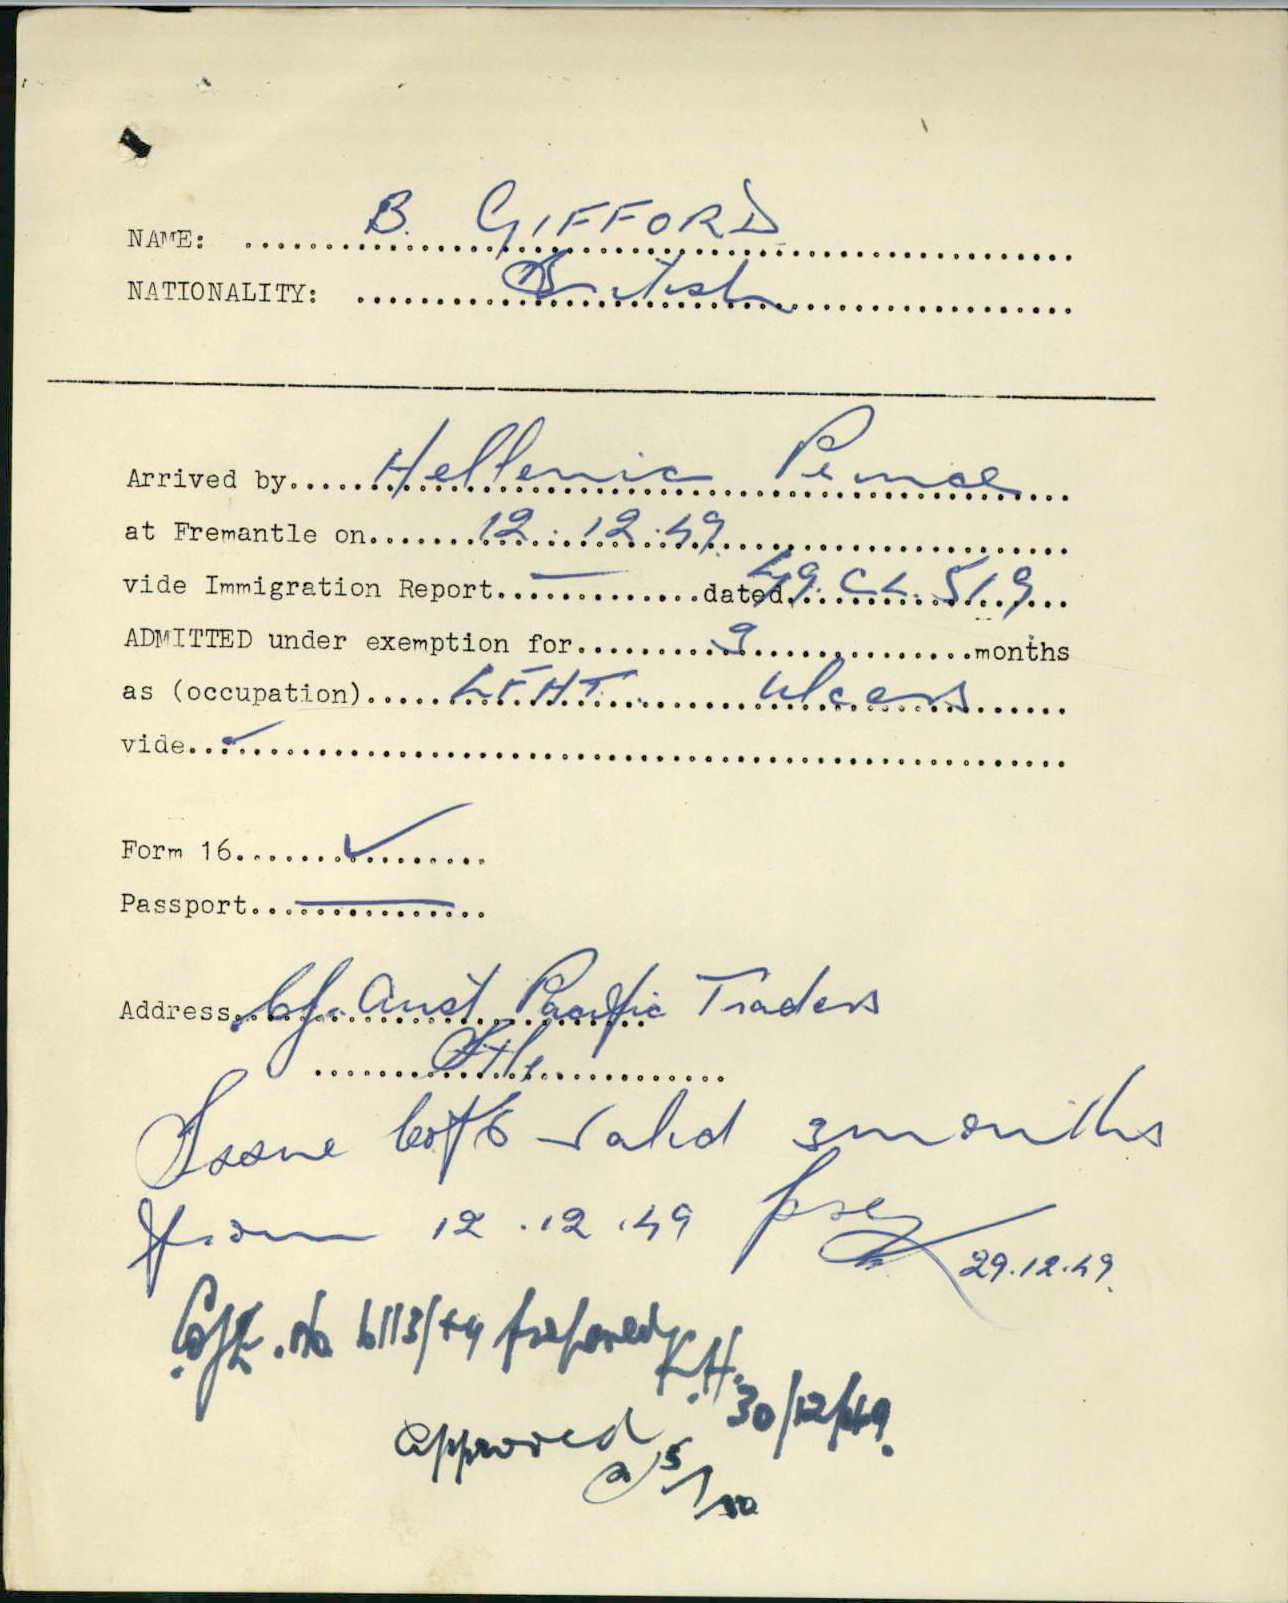 NAME: B. GIFFORD
NATIONALITY: British
Arrived by Hellenic Prince
at Fremantle on 12.12.49
vide Immigration Report — dated 49. CL. 519
ADMITTED under exemption for 3 months
as (occupation) LFHT. Ulcers
vide ✓
Form 16 ✓
Passport —
Address C/- Aust Pacific Traders
Issue CofE valid 3 months
from 12.12.49
29.12.49
CofE. No. 6113/49 prepared
K.H. 30/12/49.
Approved
5/1/50